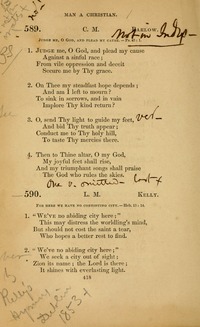 MAN A CHRISTIAN.
589. C. M. BARLOW.
not in Index
JUDGE ME, O GOD, AND PLEAD MY CAUSE.
1. JUDGE me, O God, and plead my cause
Against a sinful race;
From vile oppression and deceit
Secure me by Thy grace.
2. On Thee my steadfast hope depends;
And am I left to mourn?
To sink in sorrows, and in vain
Implore Thy kind return?
3. O, send Thy light to guide my feet,
And bid Thy truth appear;
Conduct me to Thy holy hill,
To taste Thy mercies there.
4. Then to Thine altar, O my God,
My joyful feet shall rise,
And my triumphant songs shall praise
The God who rules the skies.
One v. omitted
590. L. M. KELLY.
FOR HERE WE HAVE NO CONTINUING CITY.—HEB. 13: 14.
1. "WE'VE no abiding city here;"
This may distress the worldling's mind,
But should not cost the saint a tear,
Who hopes a better rest to find.
2. "We've no abiding city here;"
We seek a city out of sight;
Zion its name; the Lord is there;
It shines with everlasting light.
418